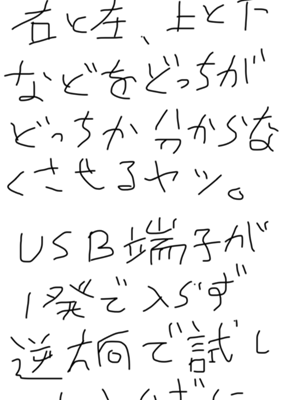 右と左、上と下
などをどっちが
どっちか分からな
くさせるヤツ。
USB端子が
1発で入らず
逆方向で試し